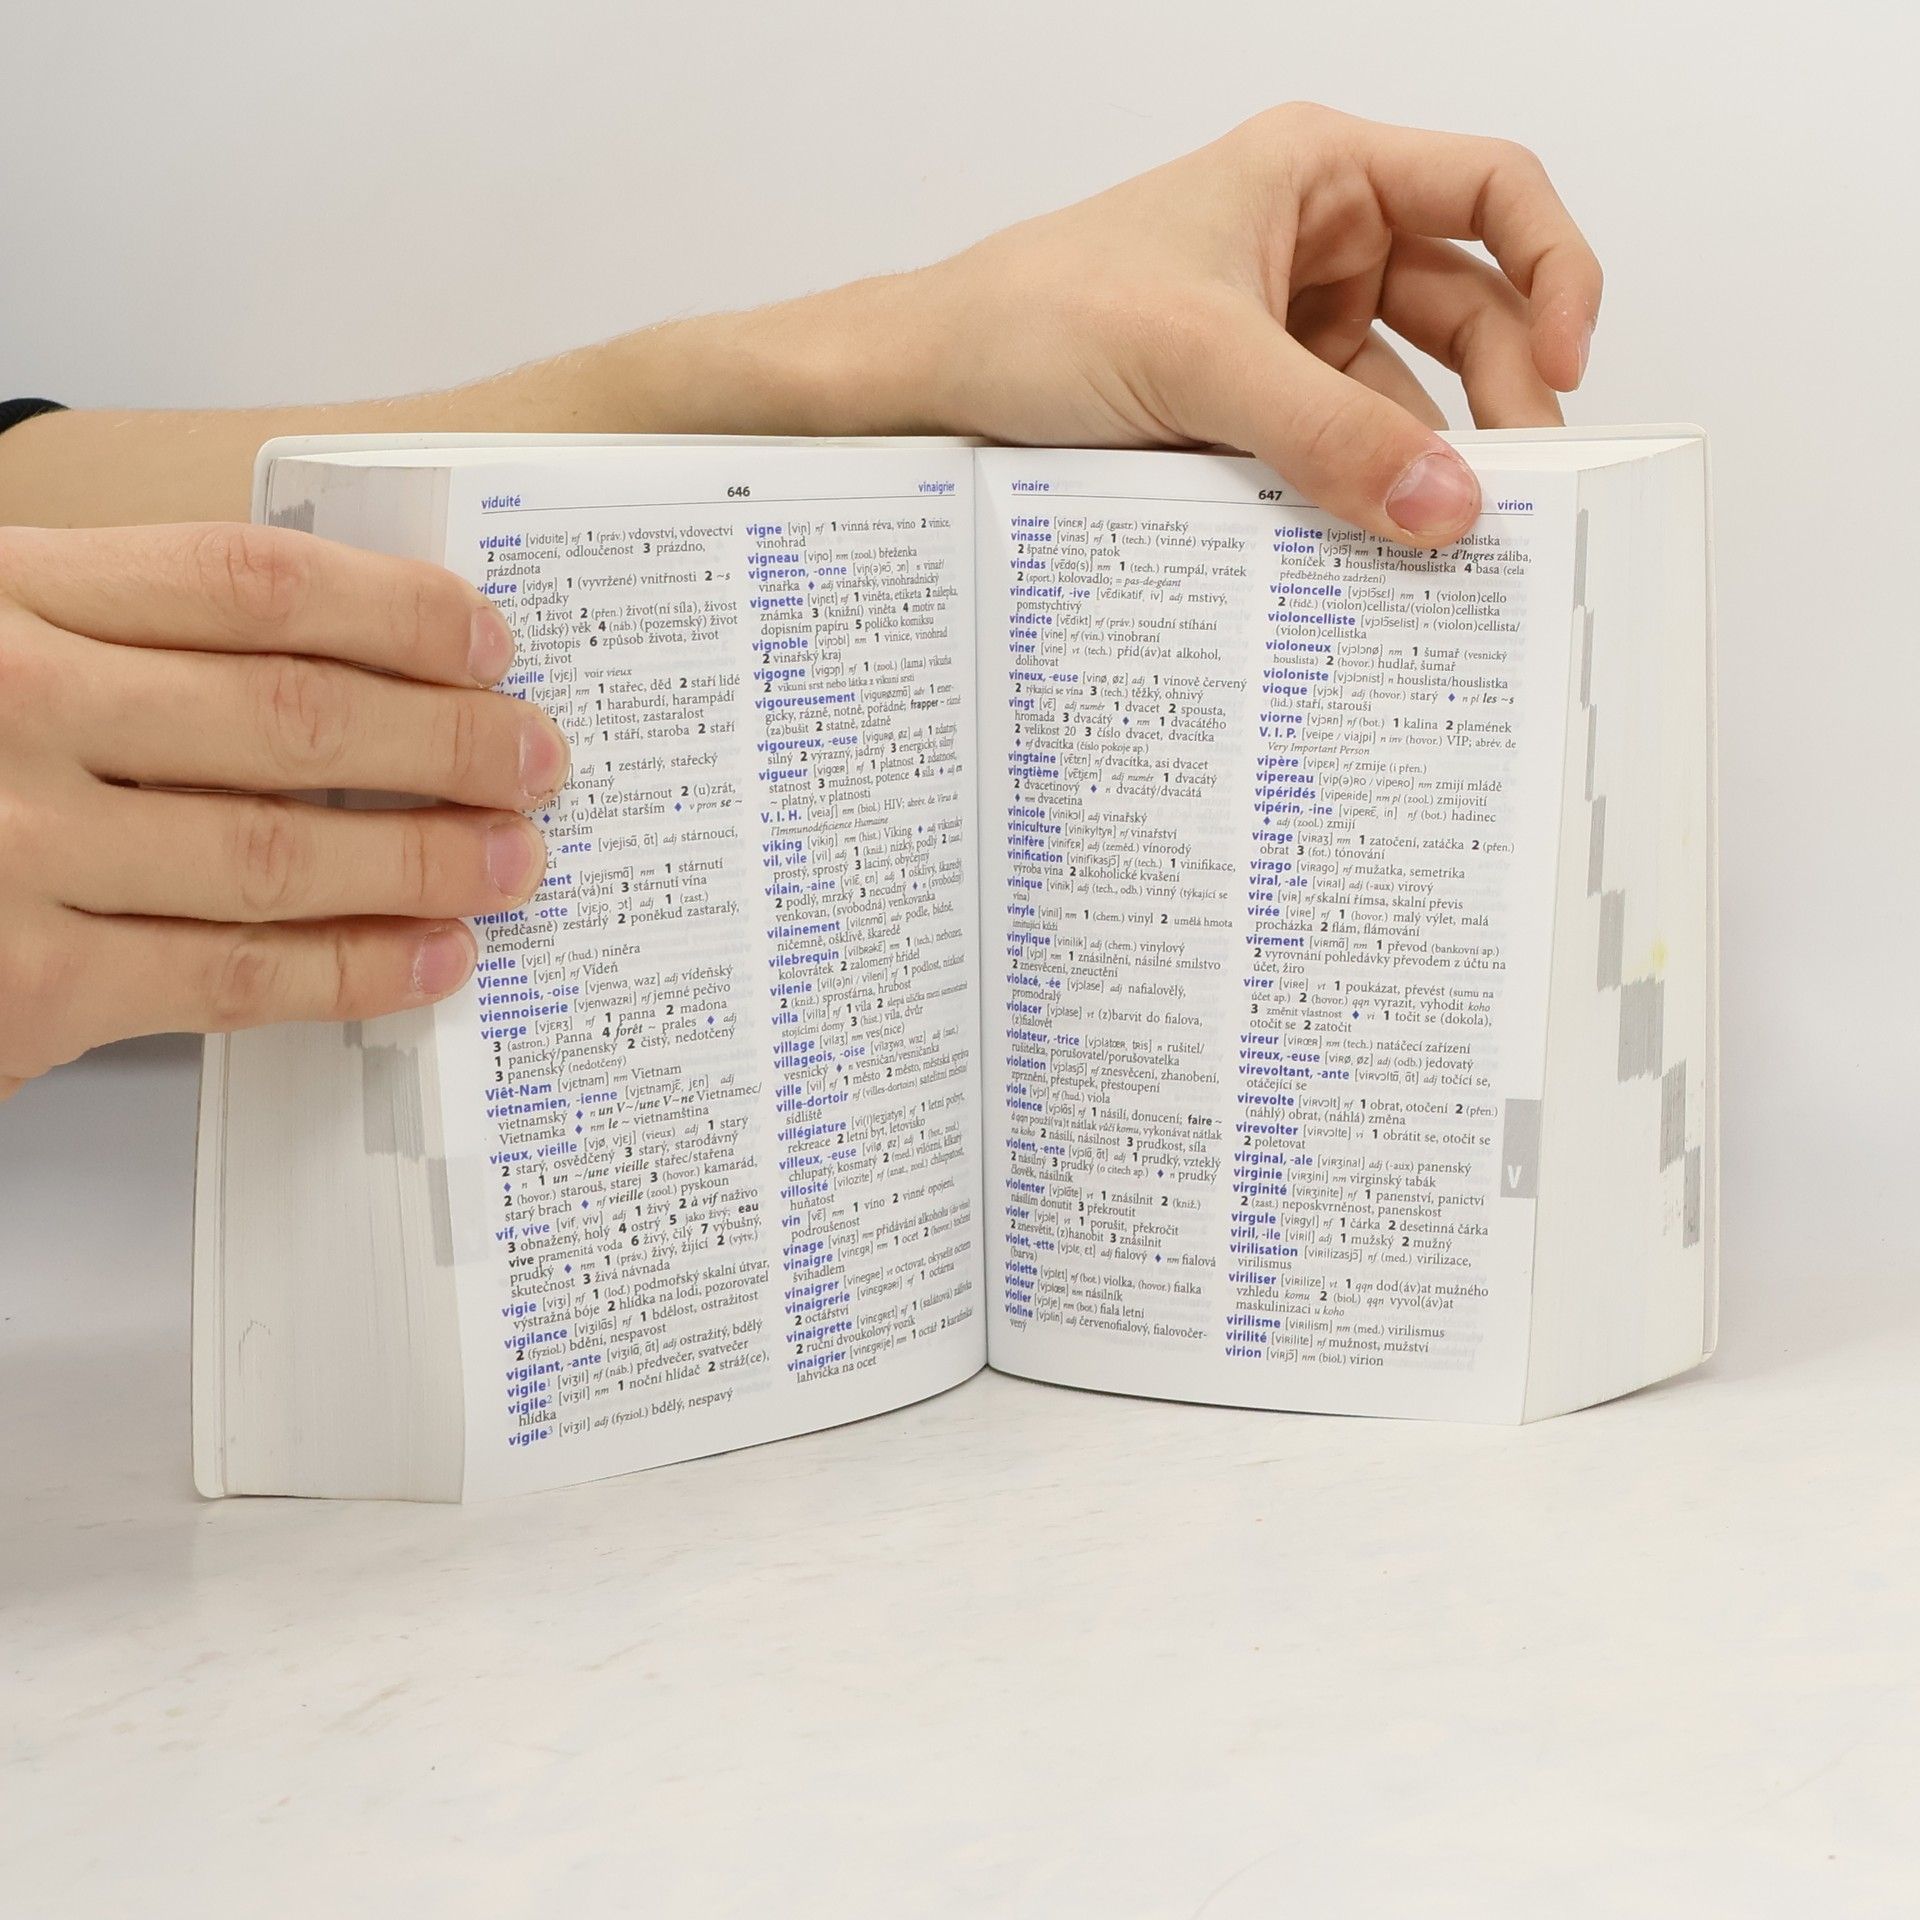 viduité 646 vinaigrier
viduité [vidɥite] nf 1 (práv.) vdovství, vdovectví
2 osamocení, odloučenost 3 prázdno,
prázdnota
vidure [vidyʀ] 1 (vyvržené) vnitřnosti 2 ~s
metí, odpadky
nf 1 život 2 (přen.) život(ní síla), živost
(lidský) věk 4 (náb.) (pozemský) život
životopis 6 způsob života, život
obytí, život
vieille [vjɛj] voir vieux
[vjɛjaʀ] nm 1 stařec, děd 2 staří lidé
nf 1 haraburdí, harampádí
(řidč.) letitost, zastaralost
nf 1 stáří, staroba 2 staří
adj 1 zestárlý, stařecký
vi 1 (ze)stárnout 2 (u)zrát,
♦ vt (u)dělat starším ♦ v pron se ~
starším
-ante [vjejisɑ̃, ɑ̃t] adj stárnoucí,
[vjejismɑ̃] nm 1 stárnutí
zastará(vá)ní 3 stárnutí vína
vieillot, -otte [vjɛjo, ɔt] adj 1 (zast.)
(předčasně) zestárlý 2 poněkud zastaralý,
nemoderní
vielle [vjɛl] nf (hud.) niněra
Vienne [vjɛn] nf Vídeň
viennois, -oise [vjenwa, waz] adj vídeňský
viennoiserie [vjenwazʀi] nf jemné pečivo
vierge [vjɛʀʒ] nf 1 panna 2 madona
3 (astron.) Panna 4 forêt ~ prales ♦ adj
1 panický/panenský 2 čistý, nedotčený
3 panenský (nedotčený)
Viêt-Nam [vjɛtnam] nm Vietnam
vietnamien, -ienne [vjɛtnamjɛ̃, jɛn] adj
vietnamský ♦ n un V~/une V~ne Vietnamec/
Vietnamka ♦ nm le ~ vietnamština
vieux, vieille [vjø, vjɛj] (vieux) adj 1 starý
2 starý, osvědčený 3 starý, starodávný
♦ n 1 un ~/une vieille stařec/stařena
2 (hovor.) starouš, starej 3 (hovor.) kamarád,
starý brach ♦ nf vieille (zool.) pyskoun
vif, vive [vif, viv] adj 1 živý 2 à vif naživo
3 obnažený, holý 4 ostrý 5 jako živý; eau
vive pramenitá voda 6 živý, čilý 7 výbušný,
prudký ♦ nm 1 (práv.) živý, žijící 2 (výtv.)
skutečnost 3 živá návnada
vigie [viʒi] nf 1 (lod.) podmořský skalní útvar,
výstražná bóje 2 hlídka na lodi, pozorovatel
vigilance [viʒilɑ̃s] nf 1 bdělost, ostražitost
2 (fyziol.) bdění, nespavost
vigilant, -ante [viʒilɑ̃, ɑ̃t] adj ostražitý, bdělý
vigile¹ [viʒil] nf (náb.) předvečer, svatvečer
vigile² [viʒil] nm 1 noční hlídač 2 stráž(ce),
hlídka
vigile³ [viʒil] adj (fyziol.) bdělý, nespavý
vigne [viɲ] nf 1 vinná réva, víno 2 vinice,
vinohrad
vigneau [viɲo] nm (zool.) břeženka
vigneron, -onne [viɲ(ə)ʀɔ̃, ɔn] n vinař/
vinařka ♦ adj vinařský, vinohradnický
vignette [viɲɛt] nf 1 viněta, etiketa 2 nálepka,
známka 3 (knižní) viněta 4 motiv na
dopisním papíru 5 políčko komiksu
vignoble [viɲɔbl] nm 1 vinice, vinohrad
2 vinařský kraj
vigogne [vigɔɲ] nf 1 (zool.) (lama) vikuňa
2 vikuní srst nebo látka z vikuní srsti
vigoureusement [viguʀøzmɑ̃] adv 1 ener-
gicky, rázně, notně, pořádně; frapper ~ rázně
(za)bušit 2 statně, zdatně
vigoureux, -euse [viguʀø, øz] adj 1 zdatný,
silný 2 výrazný, jadrný 3 energický, silný
vigueur [vigœʀ] nf 1 platnost 2 zdatnost,
statnost 3 mužnost, potence 4 síla ♦ adj en
~ platný, v platnosti
V. I. H. [veiaʃ] nm (biol.) HIV; abrév. de Virus de
l'Immunodéficience Humaine
viking [vikiŋ] nm (hist.) Viking ♦ adj vikinský
vil, vile [vil] adj 1 (kniž.) nízký, podlý 2 (zast.)
prostý, sprostý 3 laciný, obyčejný
vilain, -aine [vilɛ̃, ɛn] adj 1 ošklivý, škaredý
2 podlý, mrzký 3 necudný ♦ n (svobodný)
venkovan, (svobodná) venkovanka
vilainement [vilɛnmɑ̃] adv podle, bídně,
ničemně, ošklivě, škaredě
vilebrequin [vilbʀəkɛ̃] nm 1 (tech.) nebozez,
kolovrátek 2 zalomený hřídel
vilenie [vil(ə)ni / vileni] nf 1 podlost, nízkost
2 (kniž.) sprosťárna, hrubost
villa [villa] nf 1 vila 2 slepá ulička mezi samostatně
stojícími domy 3 (hist.) vila, dvůr
village [vilaʒ] nm ves(nice)
villageois, -oise [vilaʒwa, waz] adj (zast.)
vesnický ♦ n vesničan/vesničanka
ville [vil] nf 1 město 2 město, městská správa
ville-dortoir nf (villes-dortoirs) satelitní město/
sídliště
villégiature [vi(l)leʒjatyʀ] nf 1 letní pobyt,
rekreace 2 letní byt, letovisko
villeux, -euse [vilø, øz] adj 1 (bot., zool.)
chlupatý, kosmatý 2 (med.) vilózní, klkatý
villosité [vilozite] nf (anat., zool.) chlupatost,
huňatost
vin [vɛ̃] nm 1 víno 2 vinné opojení,
podroušenost
vinage [vinaʒ] nm přidávání alkoholu (do vína)
vinaigre [vinɛgʀ] nm 1 ocet 2 (hovor.) točení
švihadlem
vinaigrer [vinegʀe] vt octovat, okyselit octem
vinaigrerie [vinɛgʀəʀi] nf 1 octárna
2 octářství
vinaigrette [vinɛgʀɛt] nf 1 (salátová) zálivka
2 ruční dvoukolový vozík
vinaigrier [vinɛgʀije] nm 1 octář 2 karafinka/
lahvička na ocet
vinaire 647 virion
vinaire [vinɛʀ] adj (gastr.) vinařský
vinasse [vinas] nf 1 (tech.) (vinné) výpalky
2 špatné víno, patok
vindas [vɛ̃da(s)] nm 1 (tech.) rumpál, vrátek
2 (sport.) kolovadlo; = pas-de-géant
vindicatif, -ive [vɛ̃dikatif, iv] adj mstivý,
pomstychtivý
vindicte [vɛ̃dikt] nf (práv.) soudní stíhání
vinée [vine] nf (vin.) vinobraní
viner [vine] vt (tech.) přid(áv)at alkohol,
dolihovat
vineux, -euse [vinø, øz] adj 1 vínově červený
2 týkající se vína 3 (tech.) těžký, ohnivý
vingt [vɛ̃] adj numér 1 dvacet 2 spousta,
hromada 3 dvacátý ♦ nm 1 dvacátého
2 velikost 20 3 číslo dvacet, dvacítka
♦ nf dvacítka (číslo pokoje ap.)
vingtaine [vɛ̃tɛn] nf dvacítka, asi dvacet
vingtième [vɛ̃tjɛm] adj numér 1 dvacátý
2 dvacetinový ♦ n dvacátý/dvacátá
♦ nm dvacetina
vinicole [vinikɔl] adj vinařský
viniculture [vinikyltyʀ] nf vinařství
vinifère [vinifɛʀ] adj (zeměd.) vínorodý
vinification [vinifikasjɔ̃] nf (tech.) 1 vinifikace,
výroba vína 2 alkoholické kvašení
vinique [vinik] adj (tech., odb.) vinný (týkající se
vína)
vinyle [vinil] nm 1 (chem.) vinyl 2 umělá hmota
imitující kůži
vinylique [vinilik] adj (chem.) vinylový
viol [vjɔl] nm 1 znásilnění, násilné smilstvo
2 znesvěcení, zneuctění
violacé, -ée [vjɔlase] adj nafialovělý,
promodralý
violacer [vjɔlase] vt (z)barvit do fialova,
(z)fialovět
violateur, -trice [vjɔlatœʀ, tʀis] n rušitel/
rušitelka, porušovatel/porušovatelka
violation [vjɔlasjɔ̃] nf znesvěcení, zhanobení,
zprznění, přestupek, přestoupení
viole [vjɔl] nf (hud.) viola
violence [vjɔlɑ̃s] nf 1 násilí, donucení; faire ~
à qqn použí(va)t nátlak vůči komu, vykonávat nátlak
na koho 2 násilí, násilnost 3 prudkost, síla
violent, -ente [vjɔlɑ̃, ɑ̃t] adj 1 prudký, vzteklý
2 násilný 3 prudký (o citech ap.) ♦ n prudký
člověk, násilník
violenter [vjɔlɑ̃te] vt 1 znásilnit 2 (kniž.)
násilím donutit 3 překroutit
violer [vjɔle] vt 1 porušit, překročit
2 znesvětit, (z)hanobit 3 znásilnit
violet, -ette [vjɔlɛ, ɛt] adj fialový ♦ nm fialová
(barva)
violette [vjɔlɛt] nf (bot.) violka, (hovor.) fialka
violeur [vjɔlœʀ] nm násilník
violier [vjɔlje] nm (bot.) fiala letní
violine [vjɔlin] adj červenofialový, fialovočer-
vený
violiste [vjɔlist] n violistka
violon [vjɔlɔ̃] nm 1 housle 2 ~ d'Ingres záliba,
koníček 3 houslista/houslistka 4 basa (cela
předběžného zadržení)
violoncelle [vjɔlɔ̃sɛl] nm 1 (violon)cello
2 (řidč.) (violon)cellista/(violon)cellistka
violoncelliste [vjɔlɔ̃selist] n (violon)cellista/
(violon)cellistka
violoneux [vjɔlɔnø] nm 1 šumař (vesnický
houslista) 2 (hovor.) hudlař, šumař
violoniste [vjɔlɔnist] n houslista/houslistka
vioque [vjɔk] adj (hovor.) starý ♦ n pl les ~s
(lid.) staří, starouši
viorne [vjɔʀn] nf (bot.) 1 kalina 2 plamének
V. I. P. [veipe / viajpi] n inv (hovor.) VIP; abrév. de
Very Important Person
vipère [vipɛʀ] nf zmije (i přen.)
vipereau [vip(ə)ʀo / vipeʀo] nm zmijí mládě
vipéridés [vipeʀide] nm pl (zool.) zmijovití
vipérin, -ine [vipeʀɛ̃, in] nf (bot.) hadinec
♦ adj (zool.) zmijí
virage [viʀaʒ] nm 1 zatočení, zatáčka 2 (přen.)
obrat 3 (fot.) tónování
virago [viʀago] nf mužatka, semetrika
viral, -ale [viʀal] adj (-aux) virový
vire [viʀ] nf skalní římsa, skalní převis
virée [viʀe] nf 1 (hovor.) malý výlet, malá
procházka 2 flám, flámování
virement [viʀmɑ̃] nm 1 převod (bankovní ap.)
2 vyrovnání pohledávky převodem z účtu na
účet, žiro
virer [viʀe] vt 1 poukázat, převést (sumu na
účet ap.) 2 (hovor.) qqn vyrazit, vyhodit koho
3 změnit vlastnost ♦ vi 1 točit se (dokola),
otočit se 2 zatočit
vireur [viʀœʀ] nm (tech.) natáčecí zařízení
vireux, -euse [viʀø, øz] adj (odb.) jedovatý
virevoltant, -ante [viʀvɔltɑ̃, ɑ̃t] adj točící se,
otáčející se
virevolte [viʀvɔlt] nf 1 obrat, otočení 2 (přen.)
(náhlý) obrat, (náhlá) změna
virevolter [viʀvɔlte] vi 1 obrátit se, otočit se
2 poletovat
virginal, -ale [viʀʒinal] adj (-aux) panenský
virginie [viʀʒini] nm virginský tabák
virginité [viʀʒinite] nf 1 panenství, panictví
2 (zast.) neposkvrněnost, panenskost
virgule [viʀgyl] nf 1 čárka 2 desetinná čárka
viril, -ile [viʀil] adj 1 mužský 2 mužný
virilisation [viʀilizasjɔ̃] nf (med.) virilizace,
virilismus
viriliser [viʀilize] vt 1 qqn dod(áv)at mužného
vzhledu komu 2 (biol.) qqn vyvol(áv)at
maskulinizaci u koho
virilisme [viʀilism] nm (med.) virilismus
virilité [viʀilite] nf mužnost, mužství
virion [viʀjɔ̃] nm (biol.) virion
V